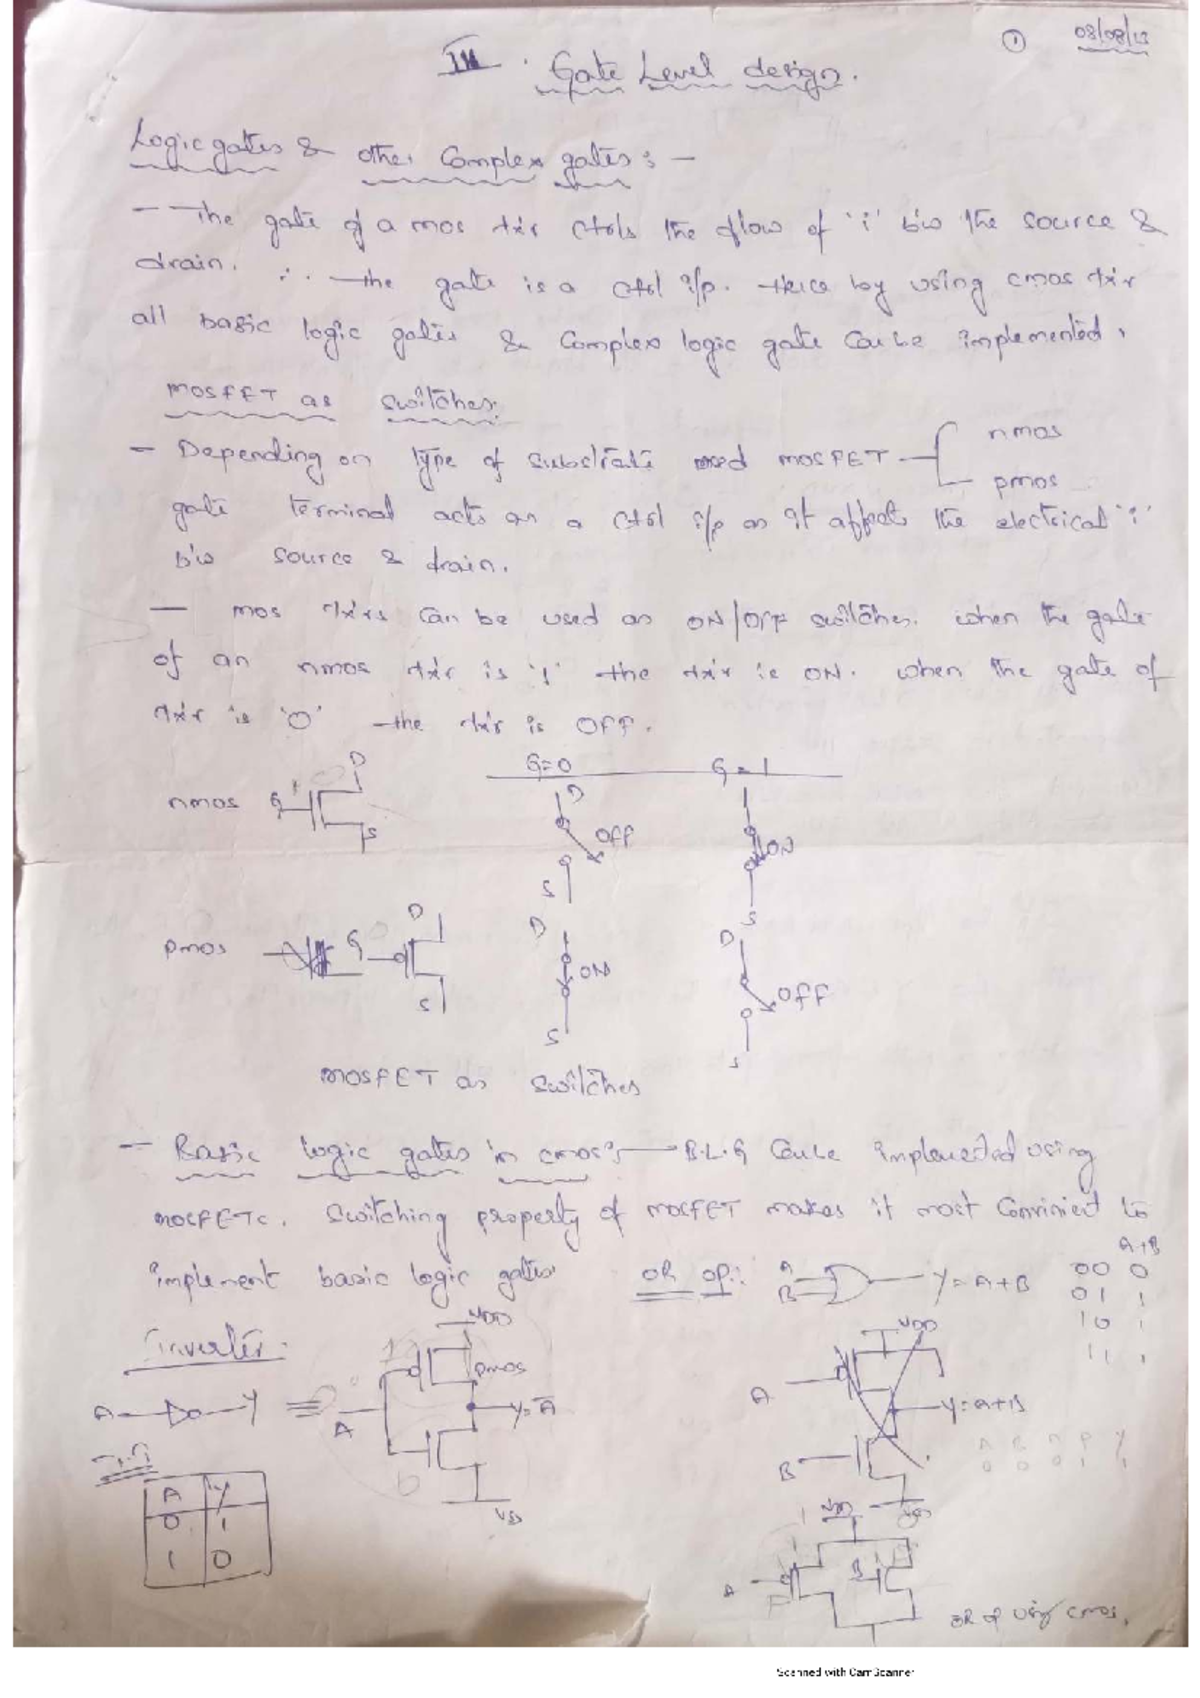 ① 03/08/13
III. Gate Level design.
Logic gates & other Complex gates : -
- The gate of a mos txr ctrls the flow of 'i' b/w the source &
drain. ∴ the gate is a ctrl i/p. Hence by using cmos txr
all basic logic gates & Complex logic gate can be implemented.
MOSFET as switches.
- Depending on type of substrate used MOSFET
nmos
pmos
gate terminal acts as a ctrl i/p as it affects the electrical 'i'
b/w source & drain.
- mos txrs can be used as ON/OFF switches. when the gate
of an nmos txr is '1' the txr is ON. when the gate of
txr is '0' the txr is OFF.
G=0 G=1
nmos G D S
D OFF S
ON S
pmos G D S
D ON S
D OFF S
MOSFET as switches
- Basic logic gates in cmos : B.L.G can be implemented using
MOSFETs. Switching property of MOSFET makes it most Convinient to
implement basic logic gates.
OR op: A B Y = A+B
A+B
00 0
01 1
10 1
11 1
Inverter.
A Y ≡ A VDD pmos Y=A̅ VSS
A Y
0 1
1 0
VDD
A Y=A+B
B
VDD
A B
OR op using cmos.
Scanned with CamScanner